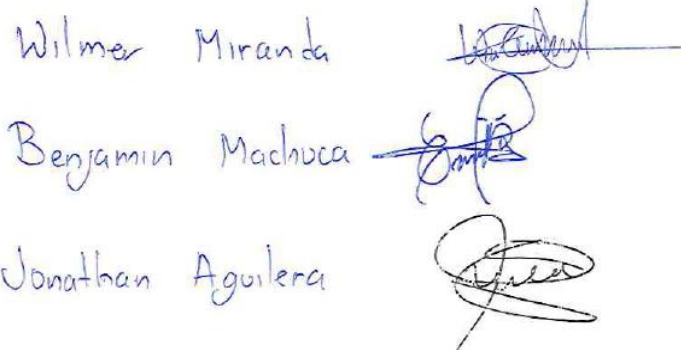 Wilmer Miranda
Benjamin Machuca
Jonathan Aguilera